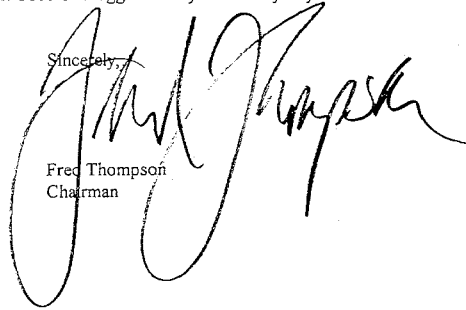 Sincerely,
Fred Thompson
Fred Thompson
Chairman